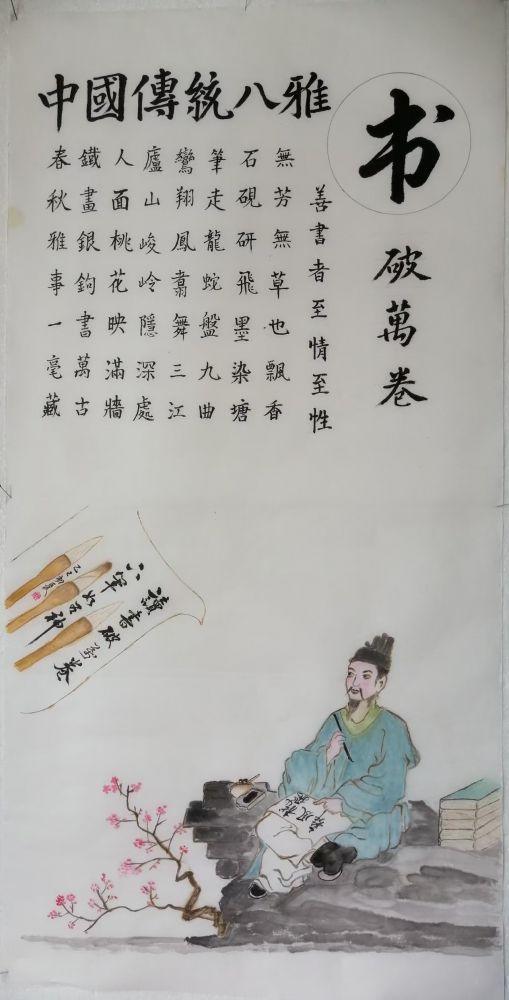 中國傳統八雅
书
破萬卷
善書者至情至性
無芳無草也飄香
石硯研飛墨染塘
筆走龍蛇盤九曲
鸞翔鳳翥舞三江
廬山峻岭隱深處
人面桃花映滿牆
鐵畫銀鉤書萬古
春秋雅事一毫藏
讀書破萬卷
下筆如有神